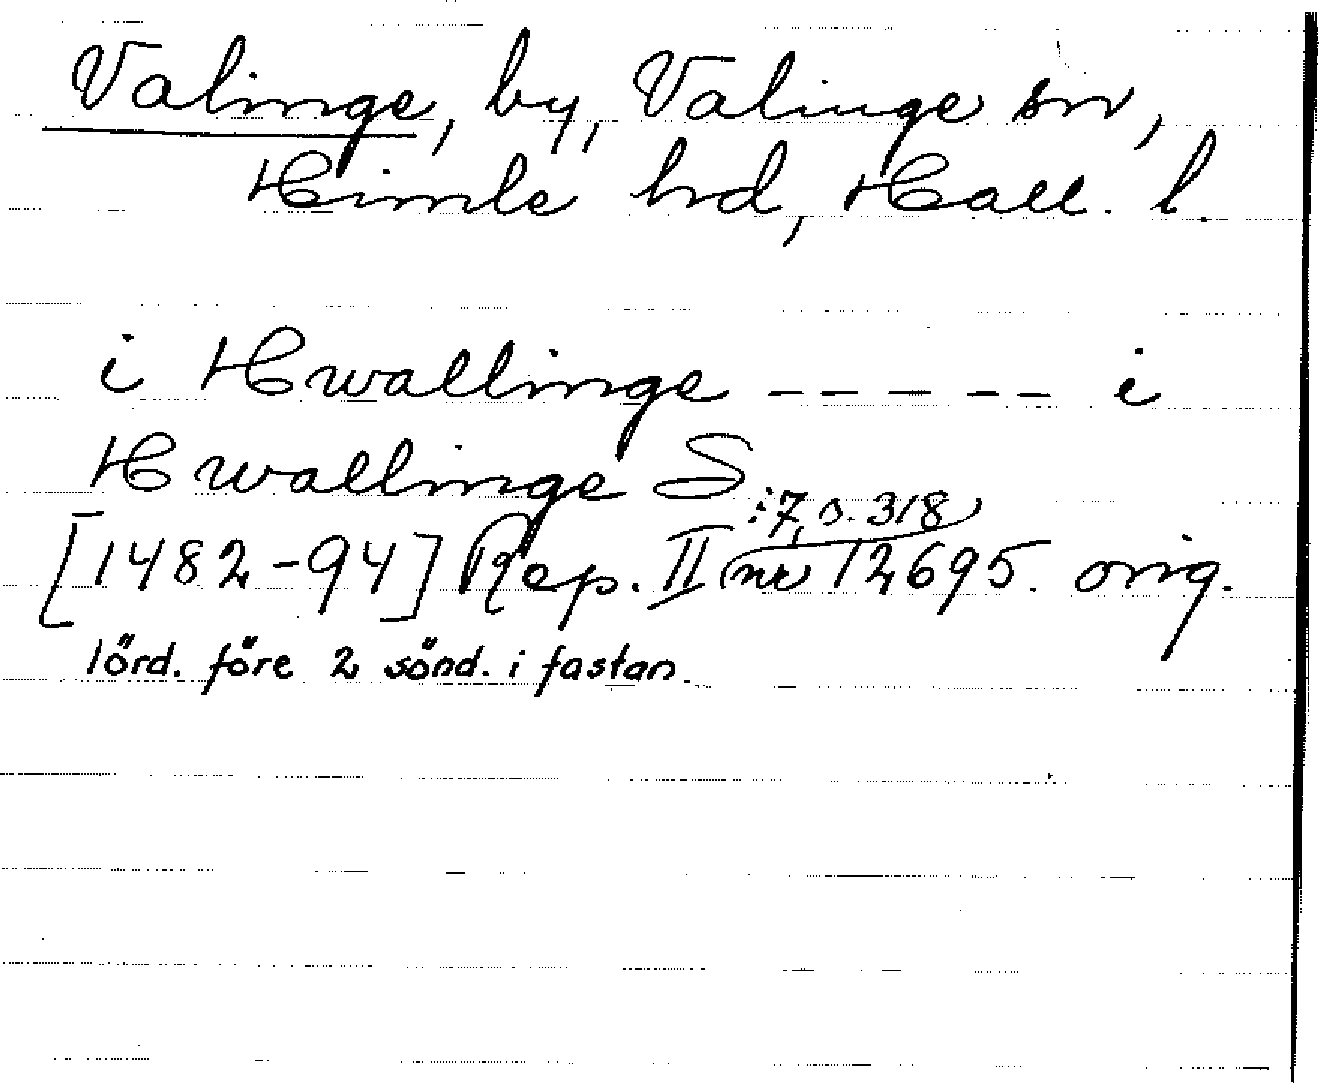 Valinge, by, Valinge sn,
Himle hd, Hall. l.
i Hwallinge ----- i
Hwallinge S
:7, s. 318
[1482-94] Rep. II nr 12695. orig.
lörd. före 2 sönd. i fastan.